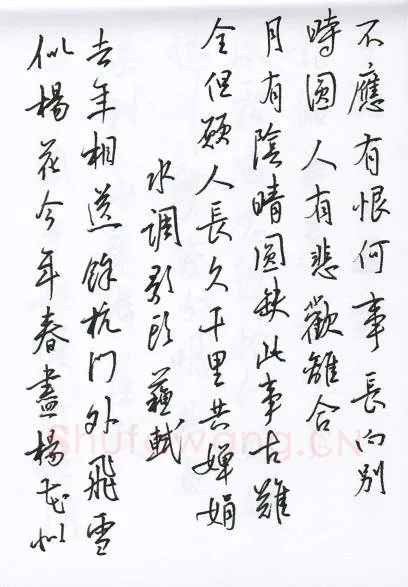 不應有恨何事長向別
時圓人有悲歡離合
月有陰晴圓缺此事古難
全但願人長久千里共嬋娟
水调歌头蘇軾
去年相送餘杭门外飛雪
似楊花今年春盡楊花似
Shufawang.CN